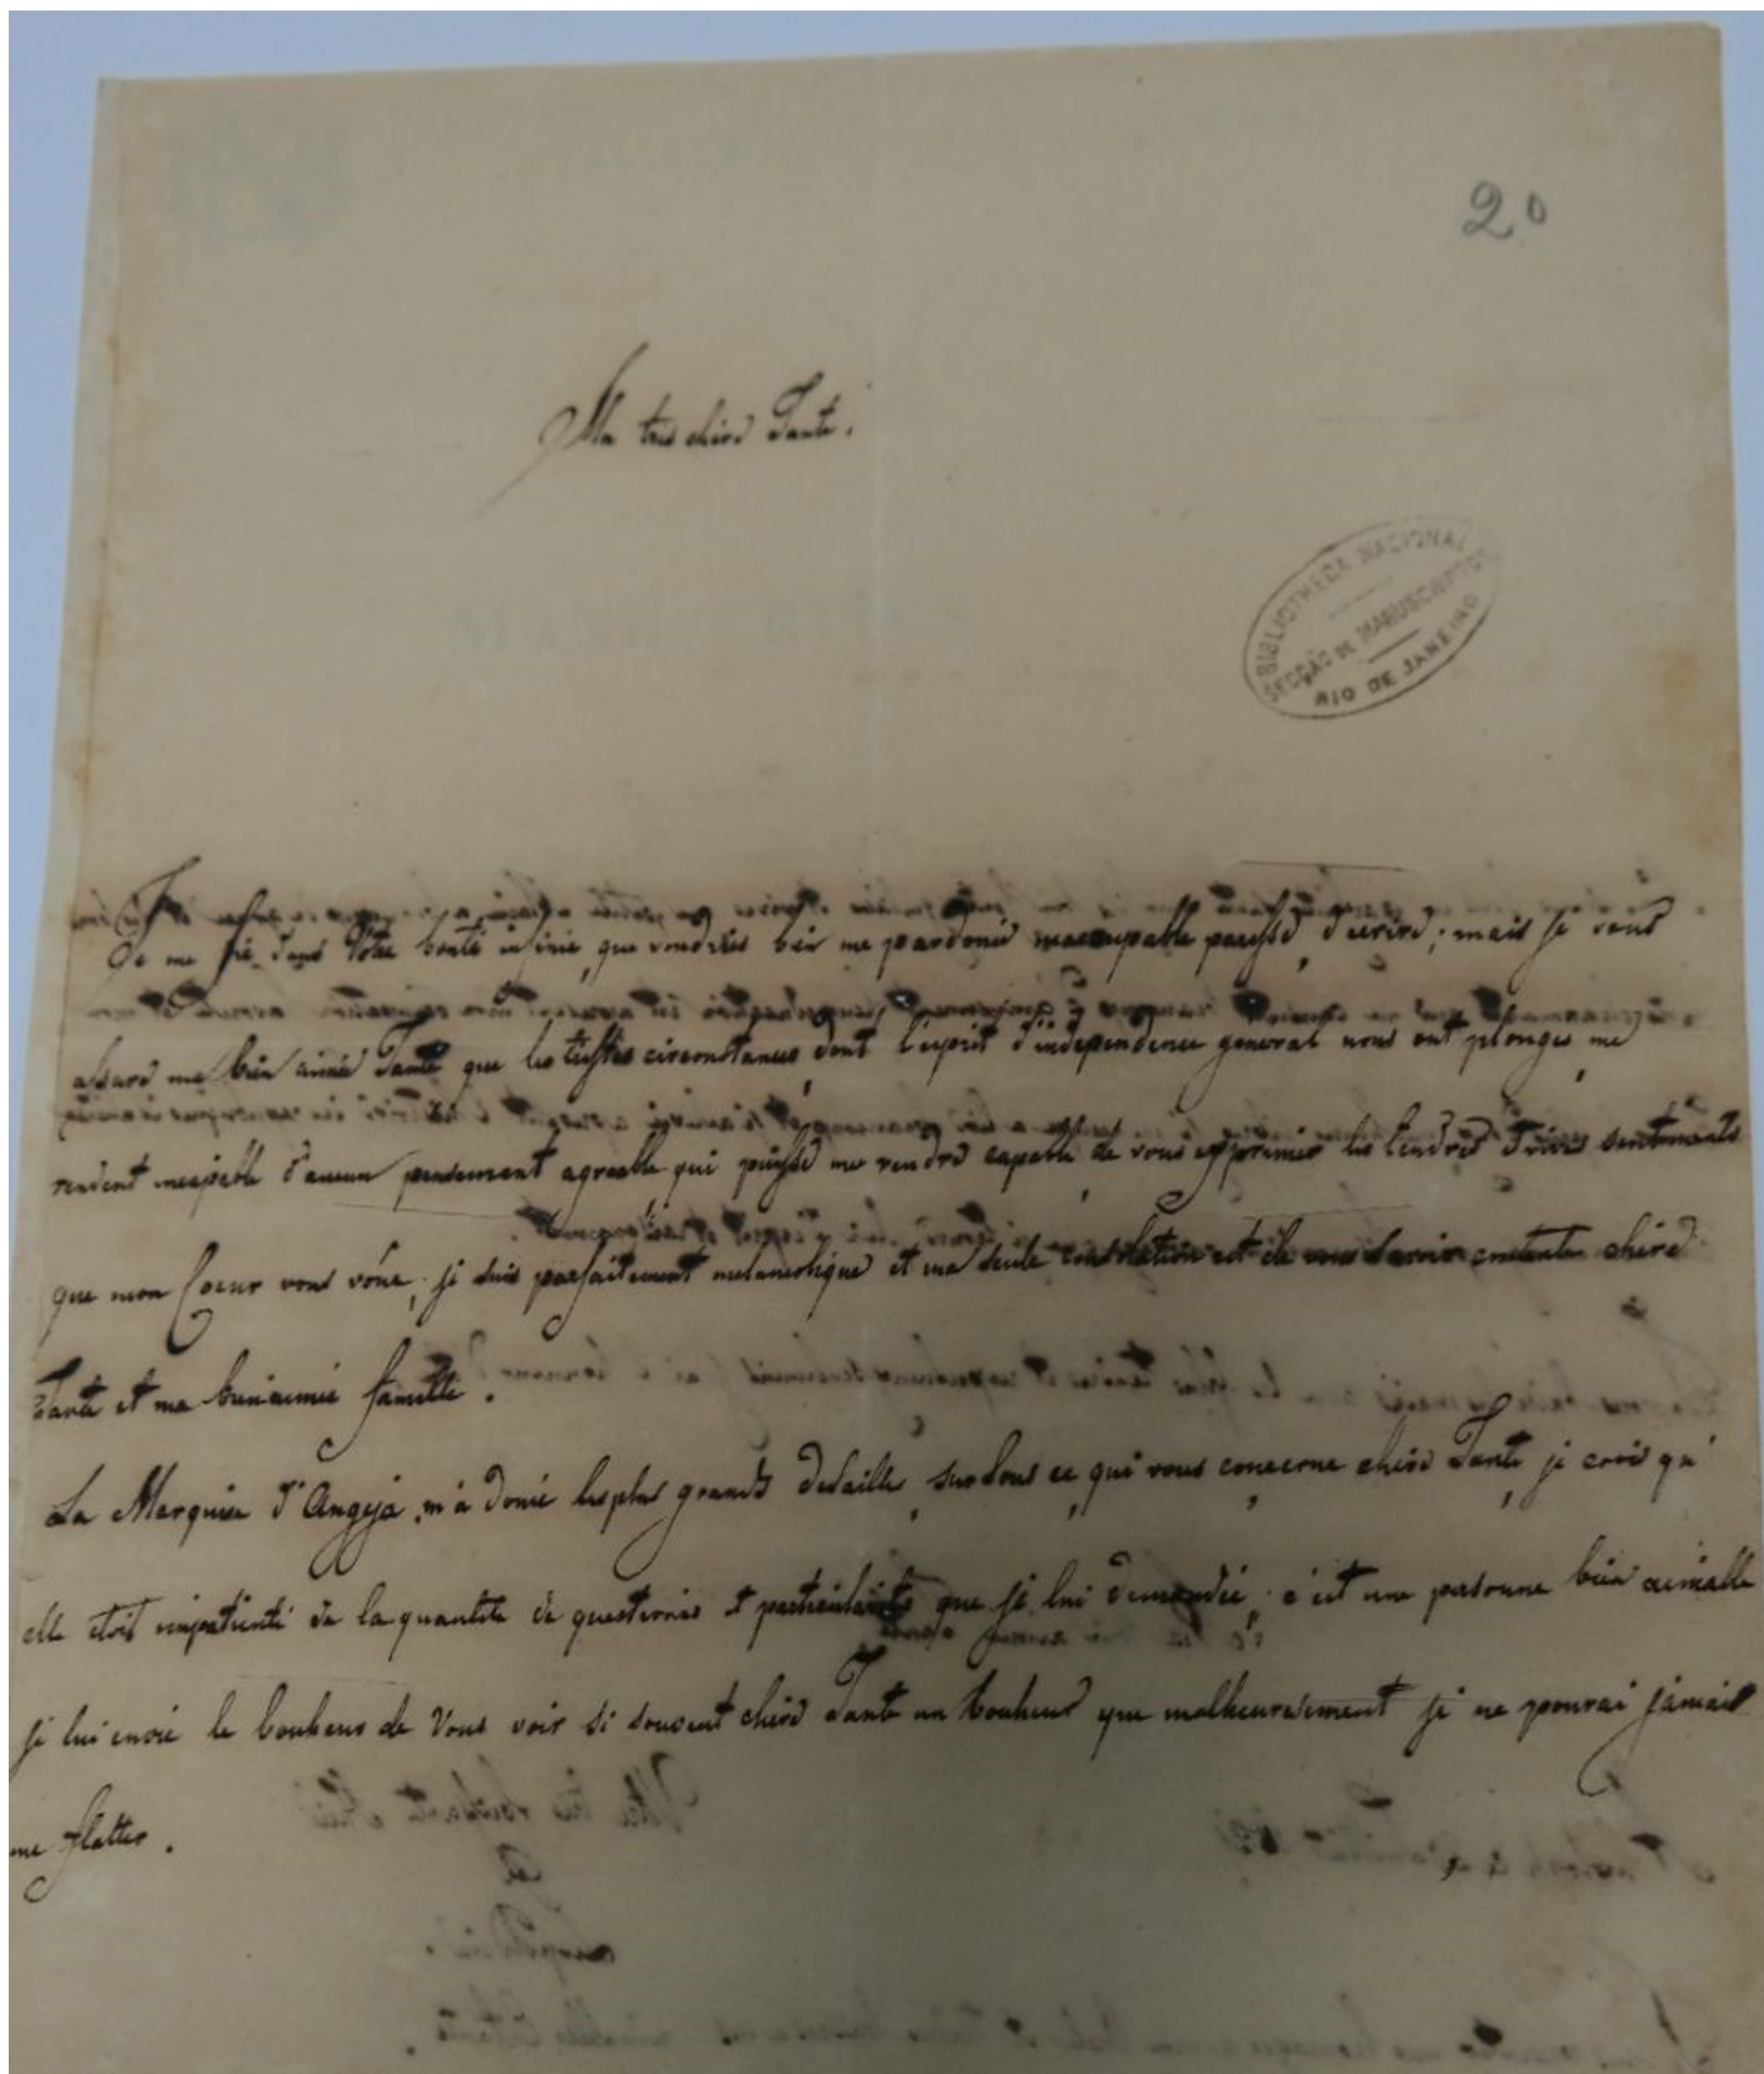 20
Ma tres chere Tante!
BIBLIOTHECA NACIONAL
SECÇÃO DE MANUSCRIPTOS
RIO DE JANEIRO
Je me fie dans Votre bonté infinie, que vondriés bien me pardonié d'ecrire; mais je vous
assure ma bien aimée Tante que les tristes circonstances, dont l'esprit d'independence general nous ont plonges, me
rendent incapable d'aucun pensement agreable qui puisse me rendre capable, de vous exprimer les tendres sentiments
que mon Coeur vous vóue, je suis parfaitement melancolique et ma seule consolation est de vous savoir contente chere
Tante et ma bienaimée famille.
La Marquise d'Angeja, m'a donié les plus grands detaille, sur tous ce, qui vous concerne, chere Tante, je crois qu'
elle etoit impatienté de la quantité de questions et particularités que je lui demandée, c'est une personne bien aimable
je lui envie le bonheur de Vous voir si souvent chere Tante un bonheur que malheuresement je ne pourai jamais
me flatter.